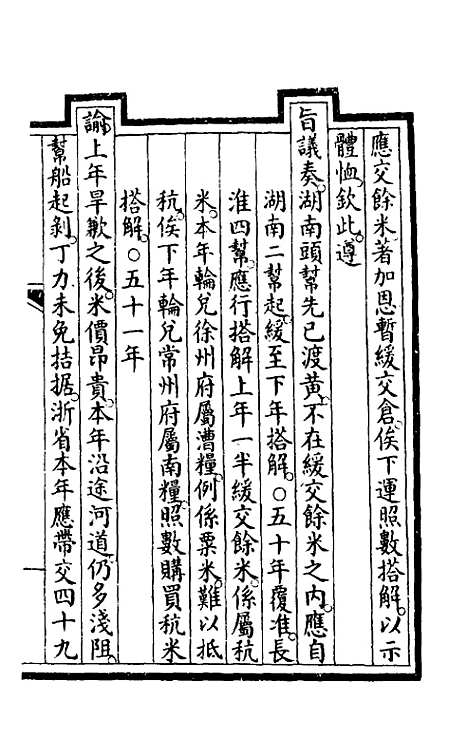 應交餘米著加恩暫緩交倉俟下運照數搭解以示
體恤欽此遵
旨議奏湖南頭幫先已渡黃不在緩交餘米之內應自
湖南二幫起緩至下年搭解○五十年覆准長
淮四幫應行搭解上年一半緩交餘米係屬秔
米本年輪兌徐州府屬漕糧例係粟米難以抵
秔俟下年輪兌常州府屬南糧照數購買秔米
搭解○五十一年
諭上年旱歉之後米價昂貴本年沿途河道仍多淺阻
幫船起剝丁力未免拮据浙省本年應帶交四十九